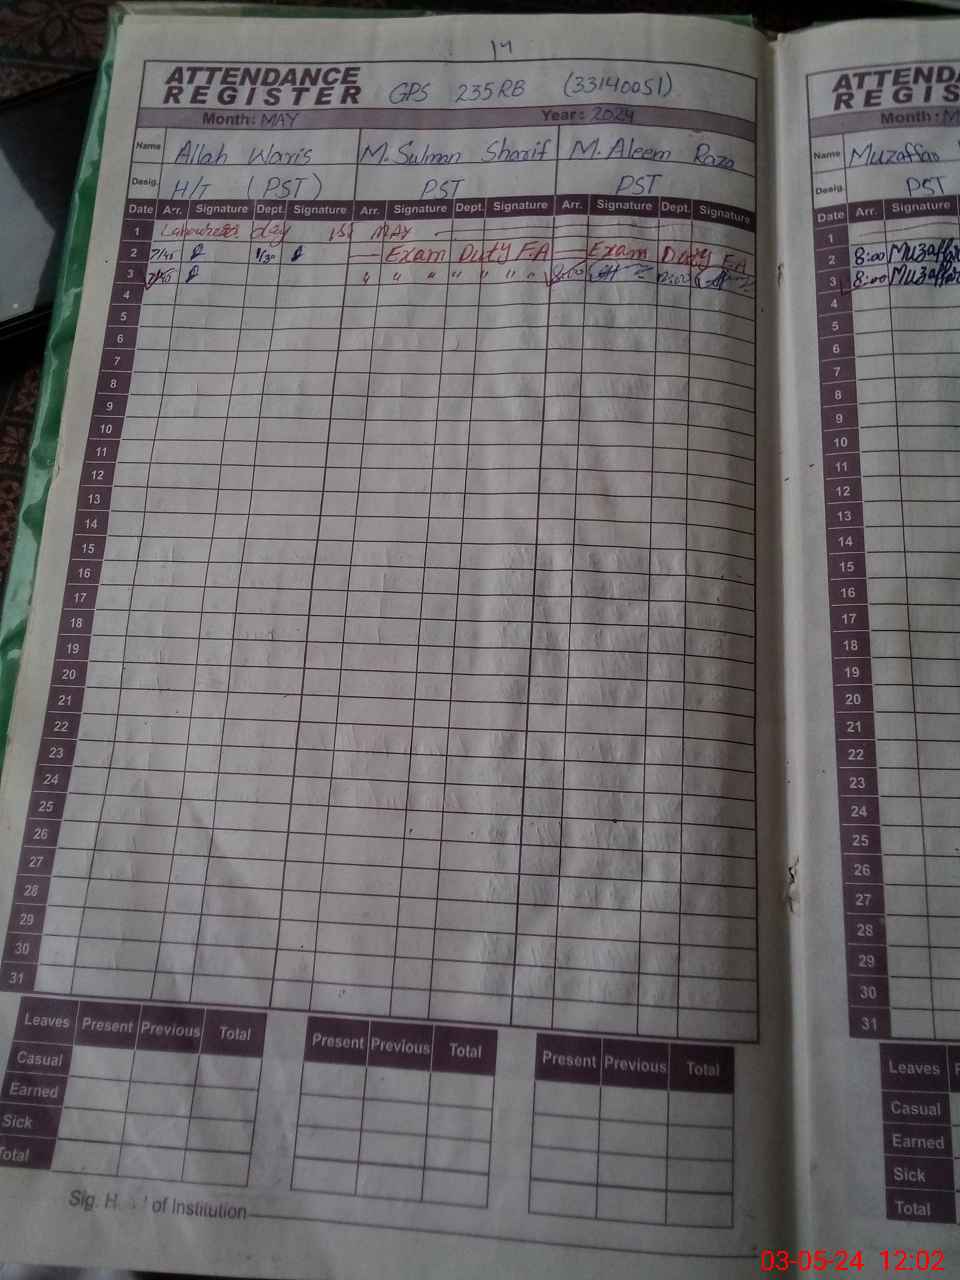 14
ATTENDANCE
REGISTER
GPS 235RB (33140051)
Month: MAY Year: 2024
Name Allah Waris M. Sulman Sharif M. Aleem Raza
Desig. H/T (PST) PST PST
Date Arr. Signature Dept. Signature Arr. Signature Dept. Signature Arr. Signature Dept. Signature
1 day 1st MAY
2 7/45 1/30 Exam Duty F.A Exam Duty F.A
3 7/40 " " " " " " " " 8:00 12:00
4
5
6
7
8
9
10
11
12
13
14
15
16
17
18
19
20
21
22
23
24
25
26
27
28
29
30
31
Leaves Present Previous Total Present Previous Total Present Previous Total
Casual
Earned
Sick
Total
Sig. H of Institution
ATTENDA
REGIS
Month: M
Name Muzaffar
Desig. PST
Date Arr. Signature
1
2 8:00 Muzaffar
3 8:00 Muzaffar
4
5
6
7
8
9
10
11
12
13
14
15
16
17
18
19
20
21
22
23
24
25
26
27
28
29
30
31
Leaves P
Casual
Earned
Sick
Total
03-05-24 12:02